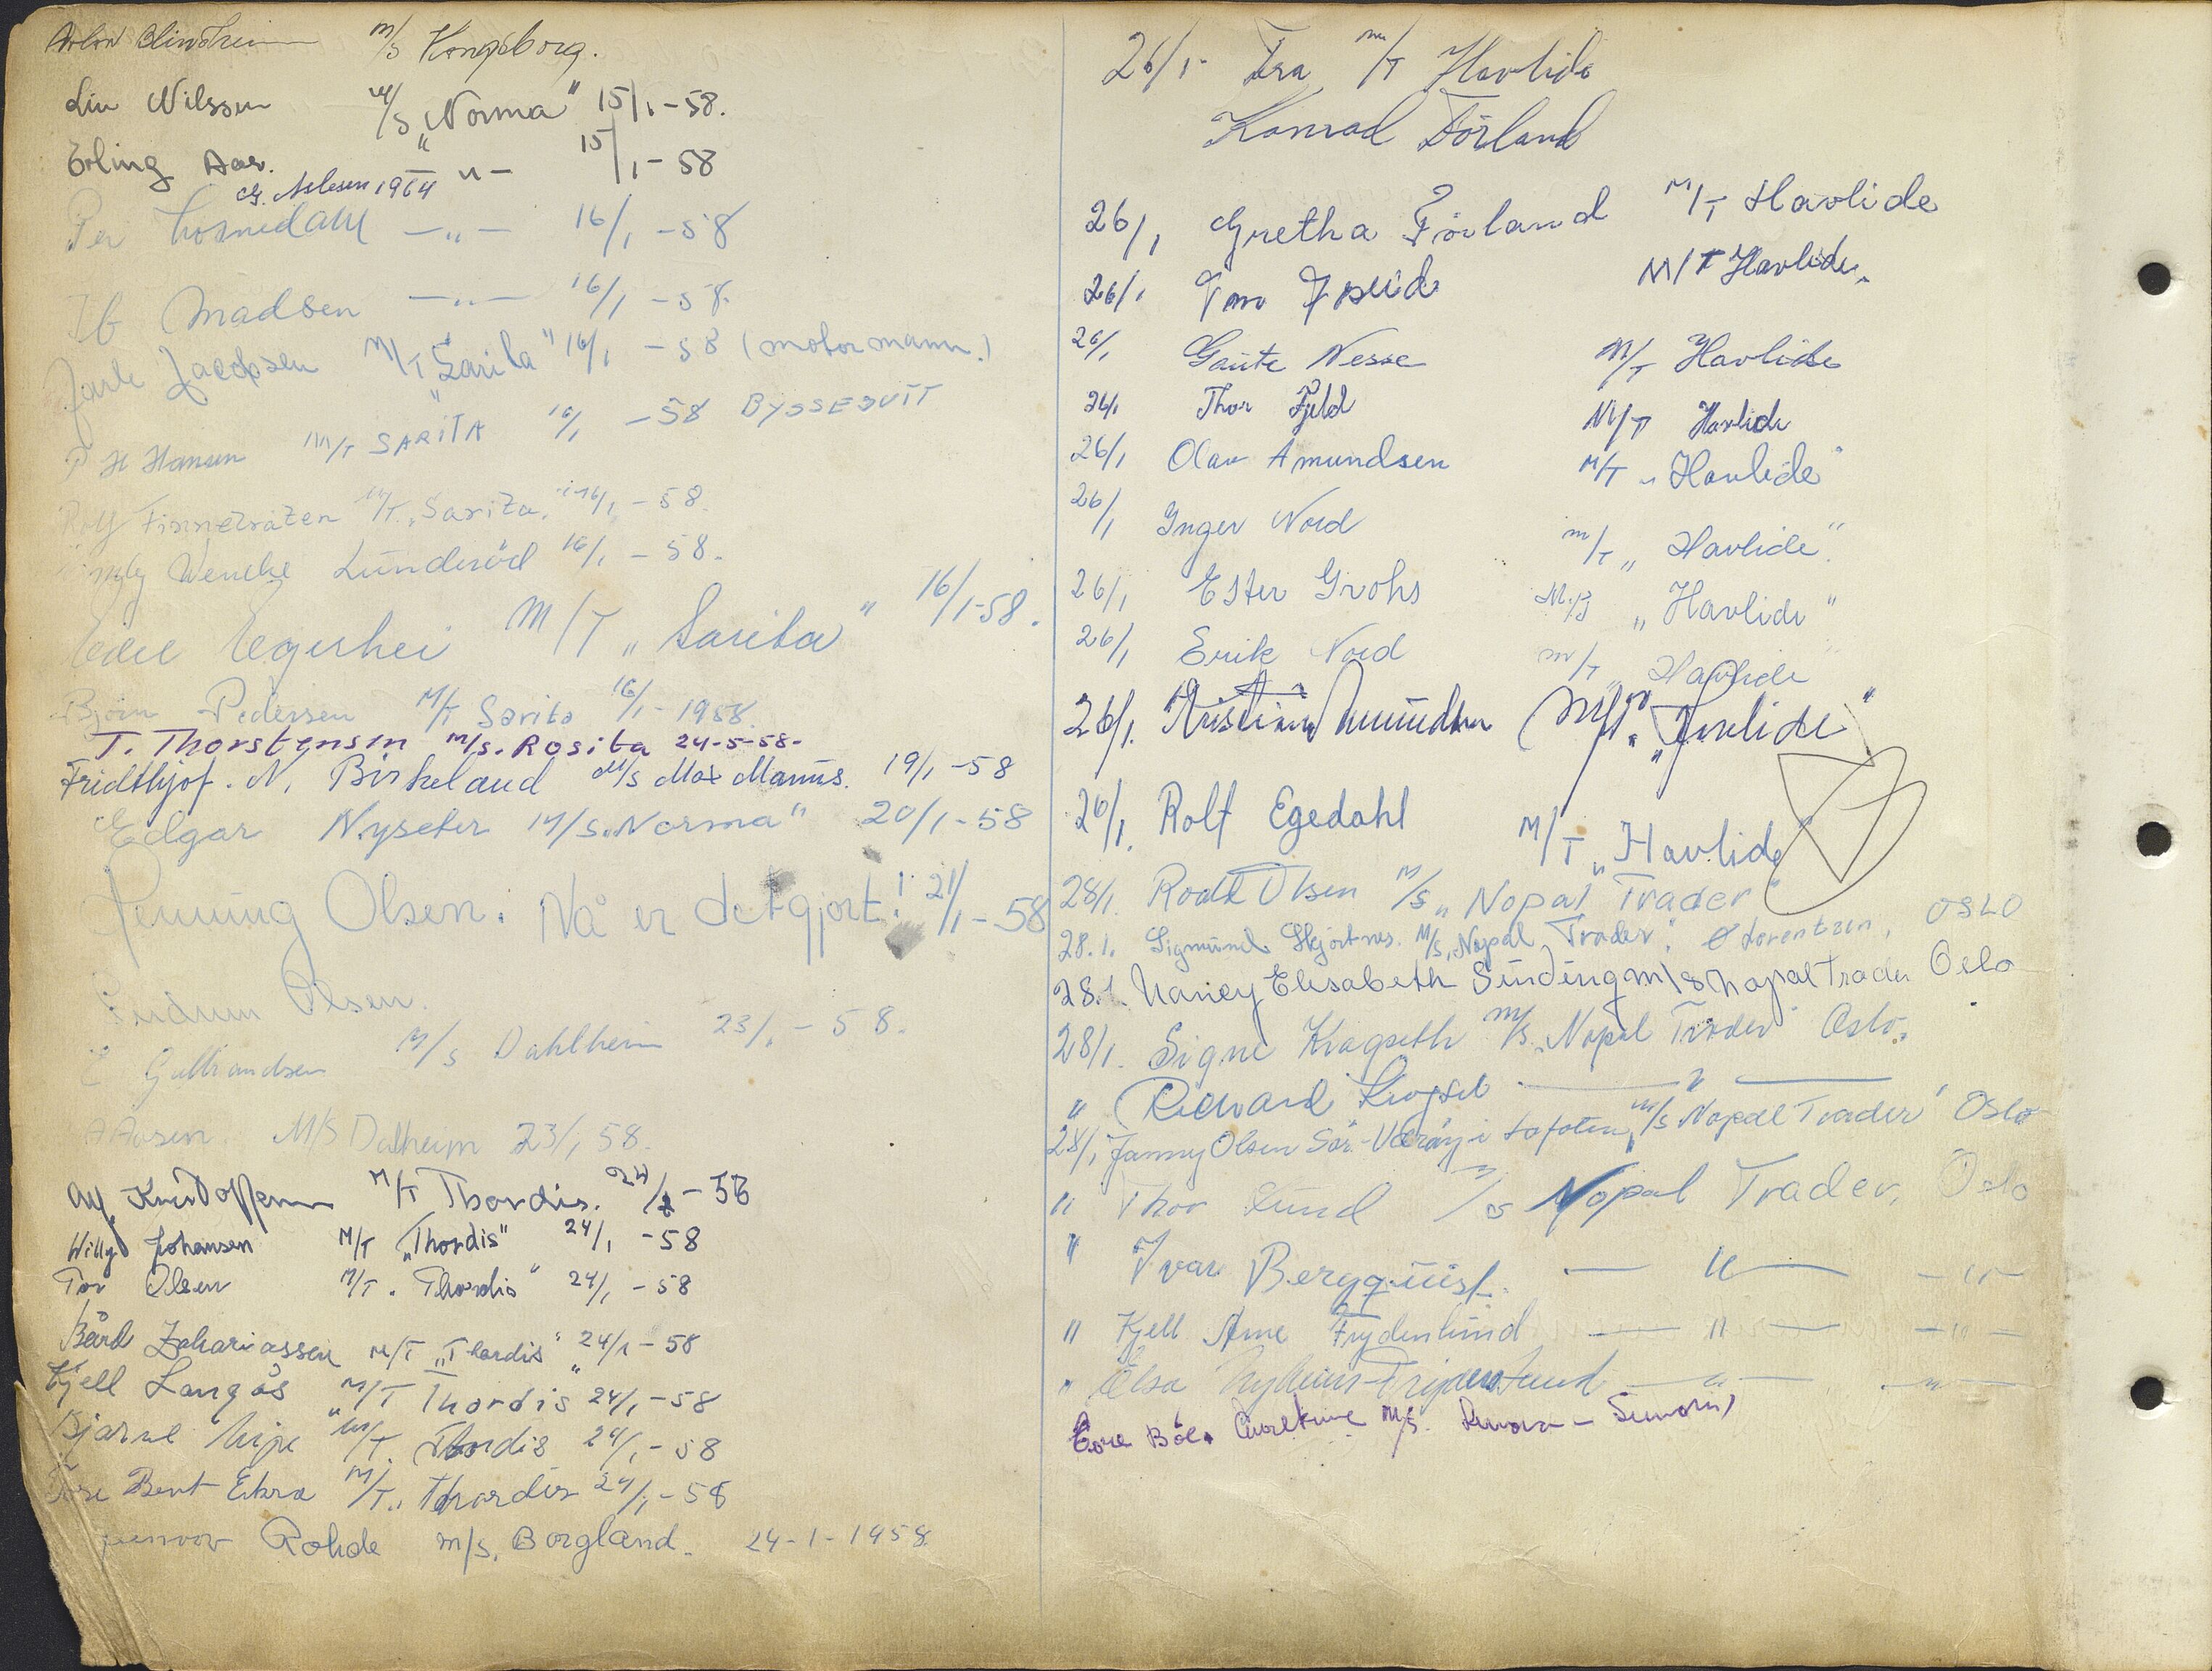 Blindheim M/S Kongsborg.
Liv Nilssen M/S „Norma" 15/1-58.
Erling Aas. -"- 15/1-58
G. Aslesen 1964
Per Losnedahl -"- 16/1-58
Ib Madsen -"- 16/1-58.
Jarle Jacobsen M/T „Sarita" 16/1-58 (motormann.)
P H Hansen M/T SARITA 16/1-58 BYSSEGUTT
Rolf M/T „Sarita" 16/1-58.
Wencke Lunderöd 16/1-58.
Egerhei M/T „Sarita" 16/1-58.
Björn Pedersen M/T Sarita 16/1-1958.
T. Thorstensen M/S. Rosita 24-5-58-
Fridthjof. N. Birkeland M/S Max Manus. 19/1-58
Edgar Nyseter M/S „Norma" 20/1-58
Henning Olsen. Nå er det gjort! 21/1-58
Olsen.
E Gulbrandsen M/S Dahlheim 23/1-58.
M/S Dalheim 23/1 58.
M/T Thordis. 24/1-58
Willy Johansen M/T „Thordis" 24/1-58
Tor Olsen M/T. Thordis" 24/1-58
Bård Zakariassen M/T „Thordis" 24/1-58
Kjell Langås M/T „Thordis" 24/1-58
Bjarne M/T. Thordis 24/1-58
Tore Bent Ekra M/T. Thordis 24/1-58
Rohde M/S. Borgland. 24-1-1958.
26/1- Fra M/T Havlide
Konrad Förland
26/1 Gretha Förland M/T Havlide
26/1 M/T Havlide.
26/1 Gaute Nesse M/T Havlide
26/1 Thor Fjeld M/T Havlide
26/1 Olav Amundsen M/T „Havlide"
26/1 Inger Nord M/T „Havlide".
26/1 Ester Grohs M/T „Havlide"
26/1 Erik Nord M/T „Havlide
26/1. Kristian Amundsen M/T. „Havlide"
26/1. Rolf Egedahl M/T „Havlide"
28/1. Roald Olsen M/S „Nopal Trader"
28.1. Sigmund Skjortnes. M/S „Nopal Trader". Ø Lorentzen, OSLO
28.1. Nancy Elisabeth Sinding m/s Nopal Trader Oslo
28/1. Signe Kragseth M/S. „Nopal Trader" Oslo.
" Rikard —"—
28/1 Janny Olsen Sör-Værøy i Lofoten, M/S Nopal Trader' Oslo
" Thor Lund M/S Nopal Trader, Oslo
" Ivar Bergquist. —"— -"-
" Kjell Arne Frydenlund —"— -"-
" Elsa —"— -"-
M/S.